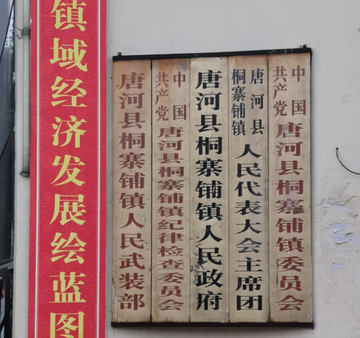 镇域经济发展绘蓝图
中国共产党唐河县桐寨铺镇委员会
唐河县桐寨铺镇人民代表大会主席团
唐河县桐寨铺镇人民政府
中国共产党唐河县桐寨铺镇纪律检查委员会
唐河县桐寨铺镇人民武装部